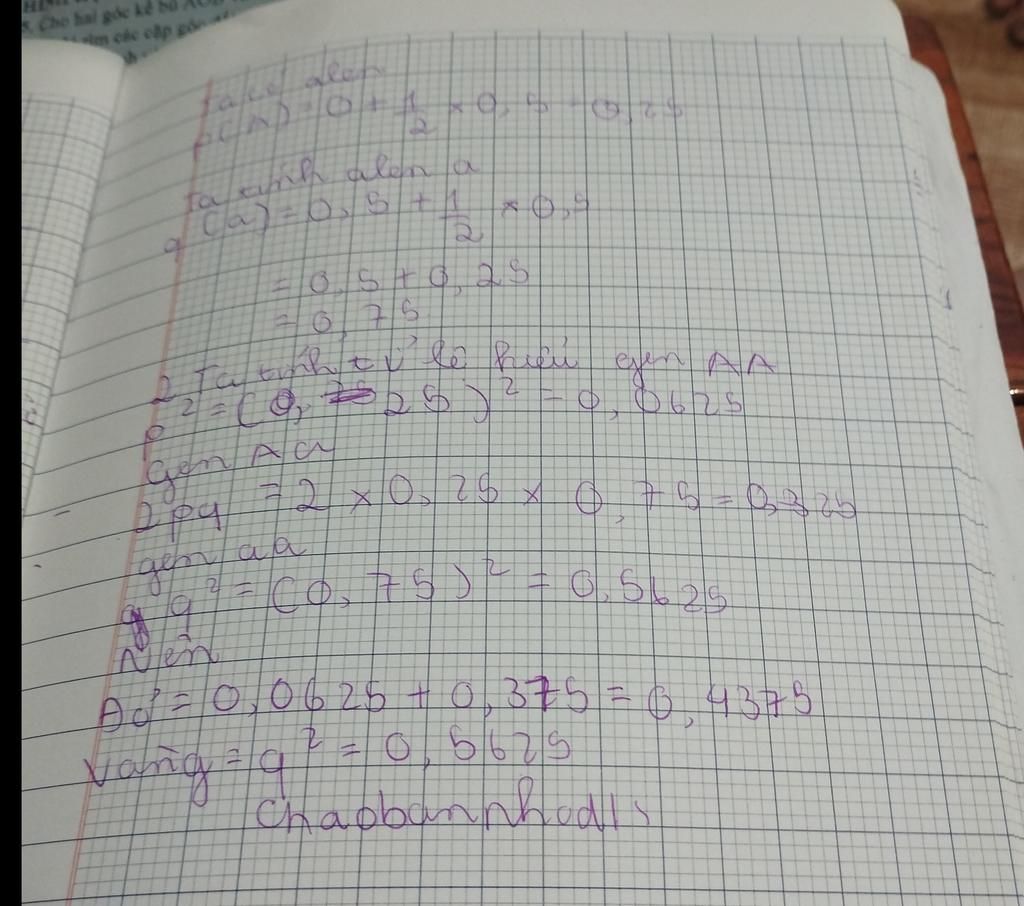 5. Cho hai góc kề bù AOB
tìm các cặp góc
Ta có alen
P(A) = 0 + 1/2 × 0,5 = 0,25
Ta tính alen a
q (a) = 0,5 + 1/2 × 0,5
= 0,5 + 0,25
= 0,75
2 Ta tính tỉ lệ kiểu gen AA
p² = (0,25)² = 0,0625
gen Aa
2pq = 2 × 0,25 × 0,75 = 0,325
gen aa
q² = (0,75)² = 0,5625
Nên
Đỏ = 0,0625 + 0,375 = 0,4375
Vàng = q² = 0,5625
Chaobannhodl